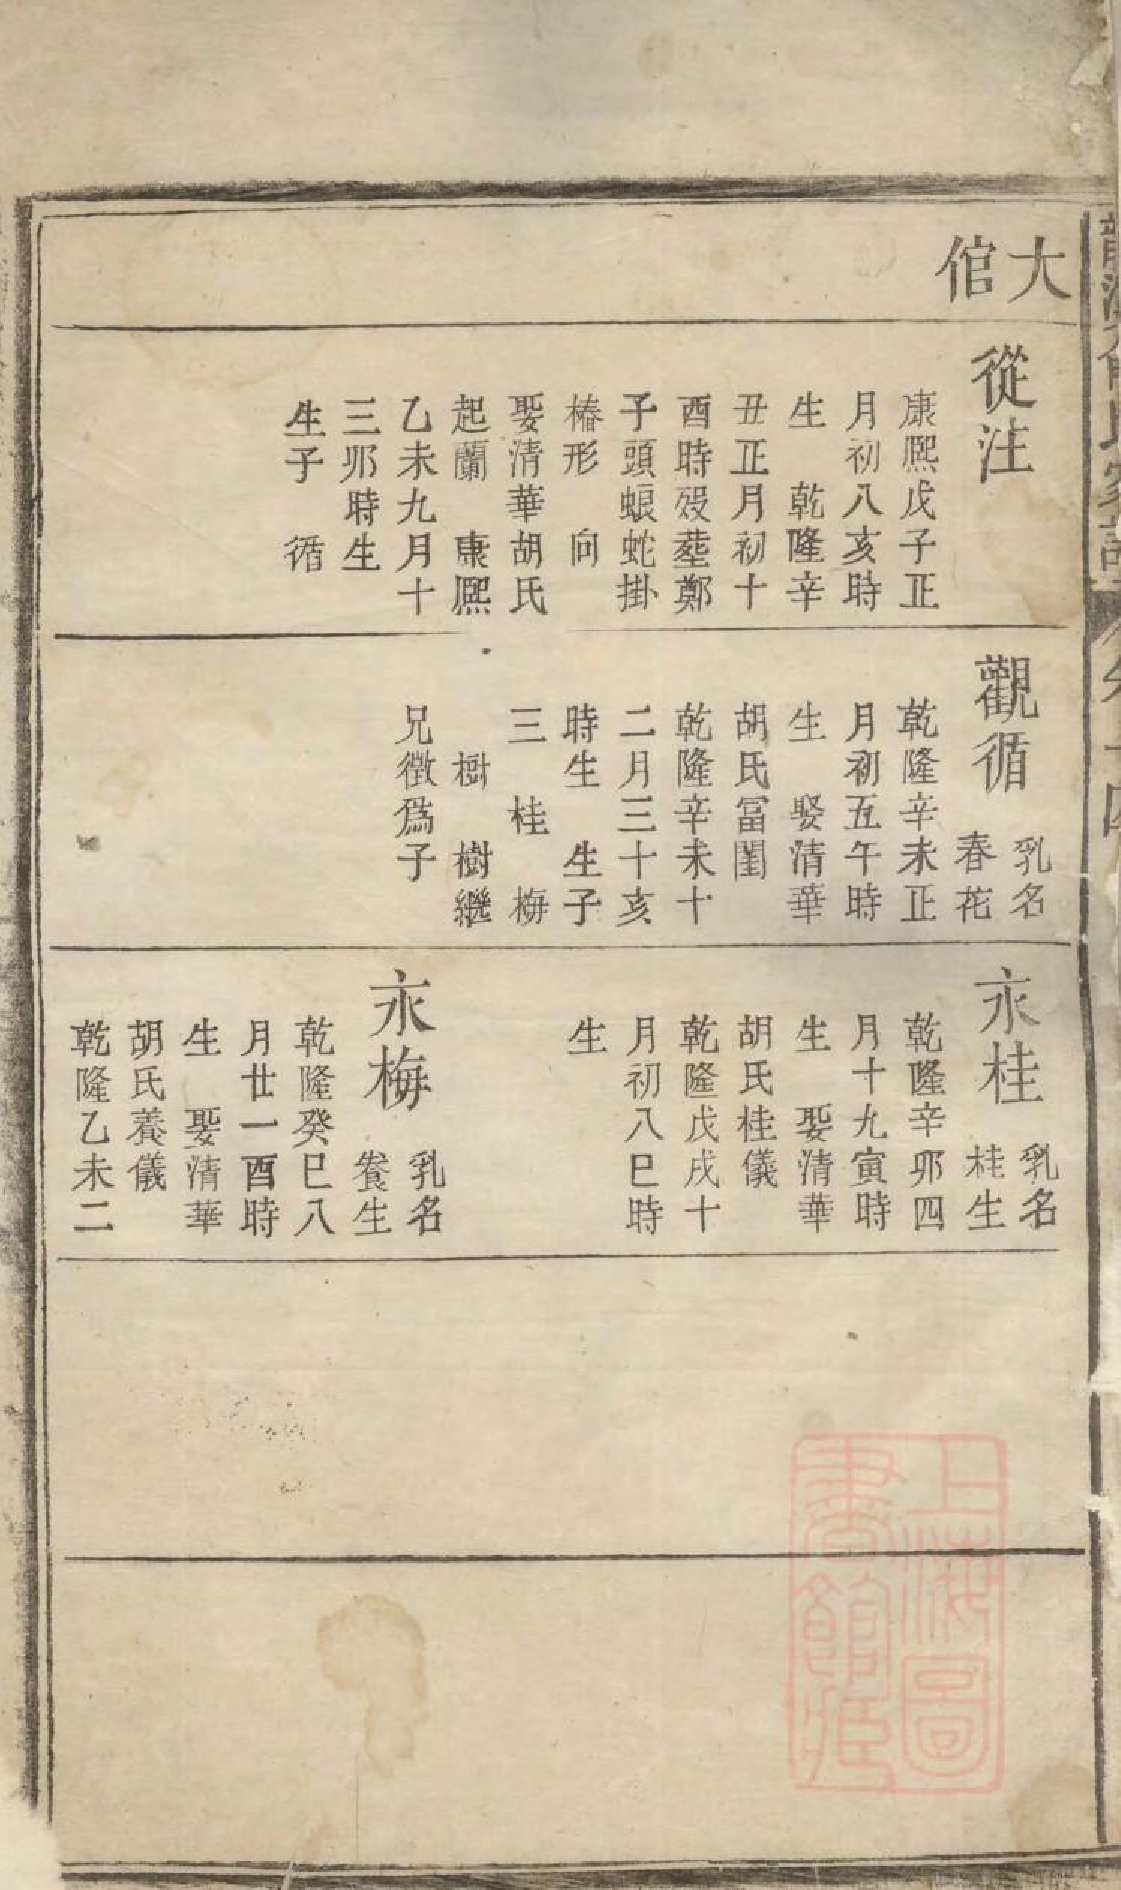 大
倌
從注
康熈戊子正
月初八亥時
生　乾隆辛
丑正月初十
酉時歿塟鄭
子頭蜋蛇掛
椿形　向
娶清華胡氏
起蘭　康熈
乙未九月十
三夘時生
生子　循
觀循
乳名
春花
乾隆辛未正
月初五午時
生　娶清華
胡氏冨閨
乾隆辛未十
二月三十亥
時生　生子
三　桂　梅
樹　樹繼
兄徵爲子
永桂
乳名
桂生
乾隆辛夘四
月十九寅時
生　娶清華
胡氏桂儀
乾隆戊戌十
月初八巳時
生
永梅
乳名
養生
乾隆癸巳八
月廿一酉時
生　娶清華
胡氏養儀
乾隆乙未二
上海圖
書館藏